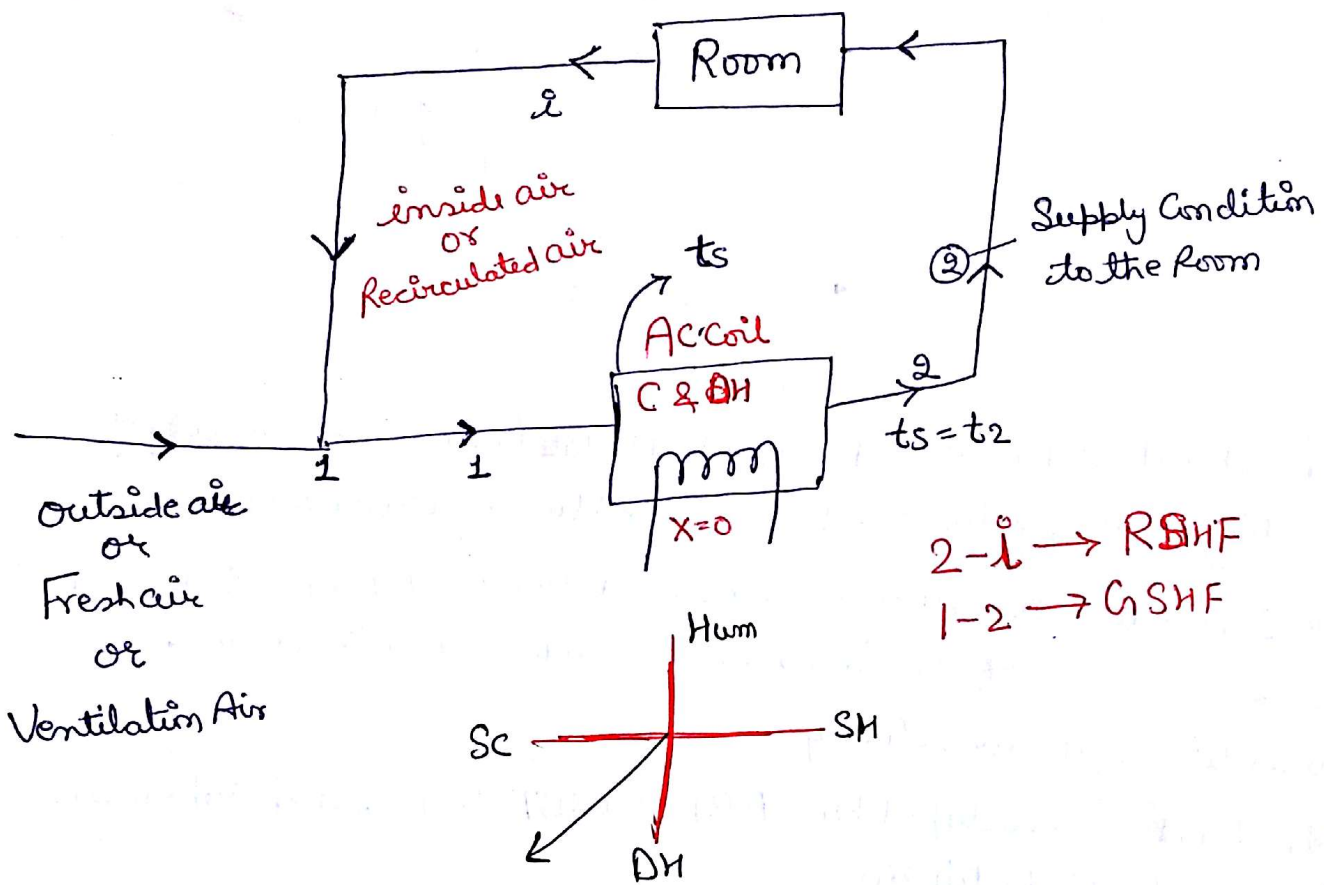 Room
i
inside air
or
Recirculated air
ts
Supply Condition
to the Room
2
AC Coil
C & DH
2
ts = t2
1
1
X=0
outside air
or
Fresh air
or
Ventilation Air
2-i → RSHF
1-2 → GSHF
Hum
SC
SH
DH